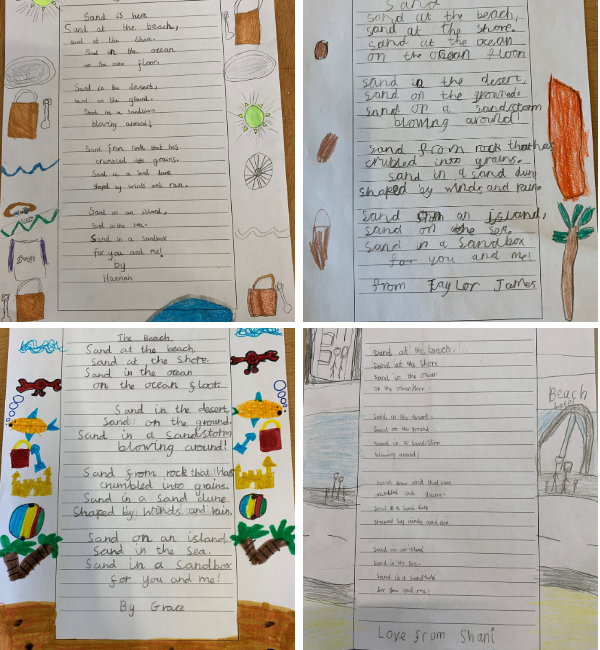 Sand is here
Sand at the beach,
sand at the shore.
Sand in the ocean
on the floor.
Sand in the desert,
sand on the ground.
Sand in a sandstorm
blowing around!
Sand from rock that has
crumbled into grains.
Sand in a sand dune
shaped by winds and rain.
Sand on an island,
Sand in the sea.
Sand in a sandbox
for you and me!
by
Hannah
Sand
sand at the beach,
sand at the shore.
sand at the ocean
on the ocean floor
sand in the desert,
sand on the ground.
sand on a sandstorm
blowing around!
sand from rock that has
crubled into grains.
sand in a sand dune
shaped by winds and rain.
Sand on an island,
sand on the sea.
Sand in a Sandbox
for you and me!
from Taylor James
The Beach
Sand at the beach
Sand at the Shore.
Sand in the ocean
on the ocean floor.
Sand in the desert
Sand on the ground.
Sand in a Sandstorm
blowing around!
Sand from rock that has
crumbled into grains.
Sand in a Sand dune
Shaped by winds and rain.
Sand on an island
Sand in the Sea.
Sand in a Sandbox
for you and me!
By Grace
Sand at the beach
Sand at the Shore
Sand in the ocean
on the
Sand in the desert.
Sand on the ground
Sand in a
blowing around!
Sand from rock that
into
Sand in a Sand dune
Shaped by winds and rain
Sand on an island
Sand in the Sea.
Sand in a
for you and me!
Love from Shani
Beach